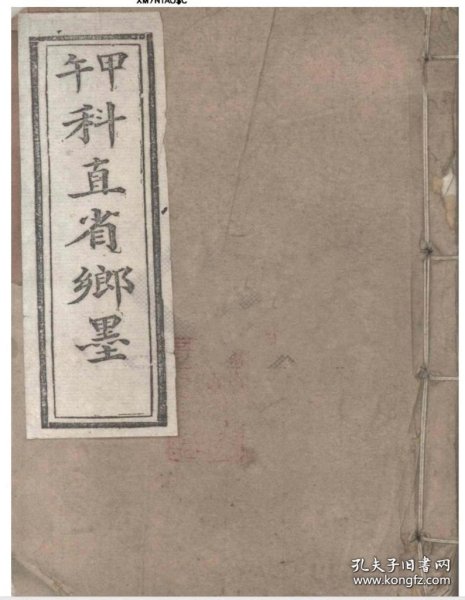 甲午
科直省鄉墨
孔夫子旧书网
www.kongfz.com